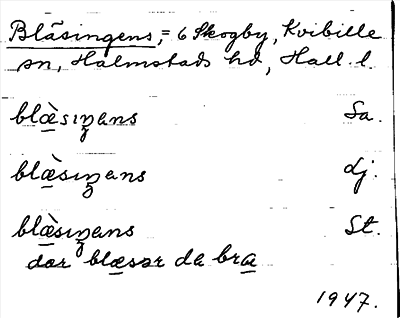 Blåsingens, = 6 Skogby, Kvibille
sn, Halmstads hd, Hall. l.
blæ̀sıŋens Sa.
blæ̀sıŋens dj.
blæ̀sıŋens St.
dær blæsər da bra
1947.